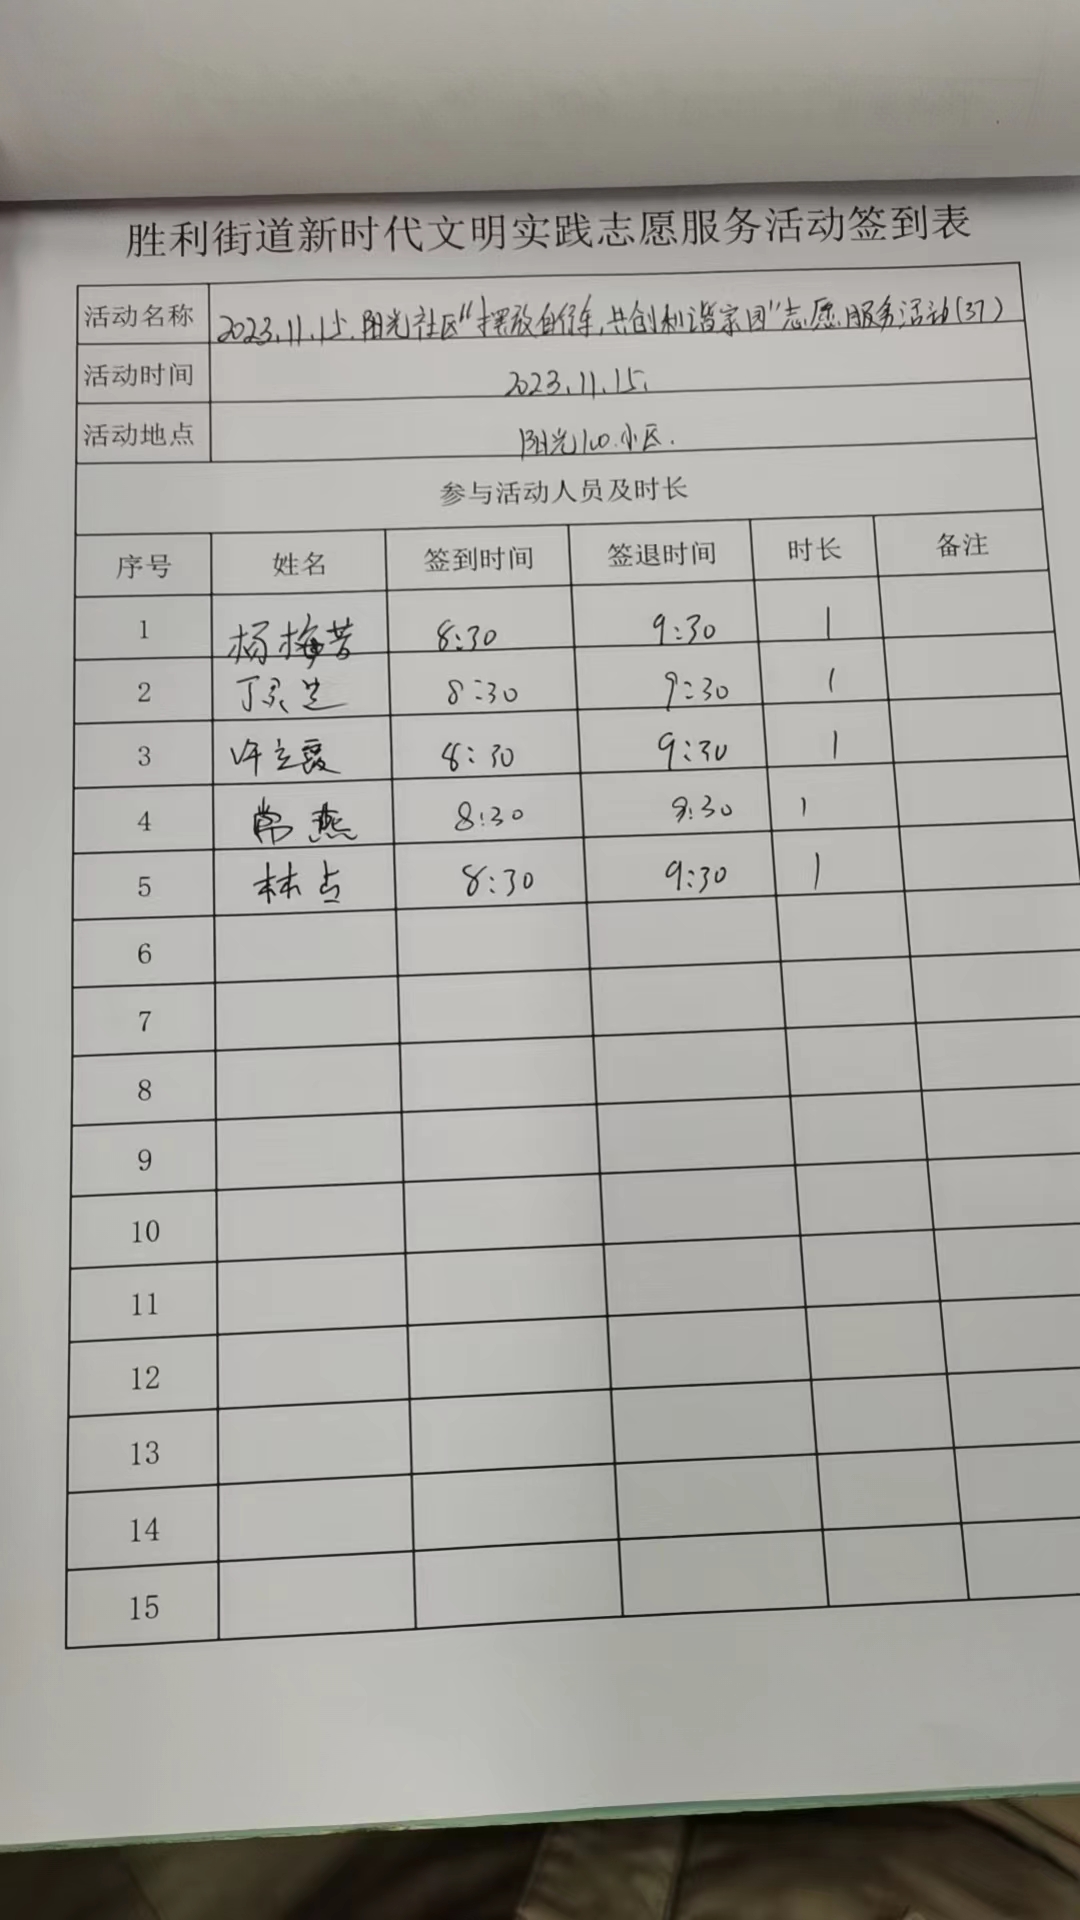 胜利街道新时代文明实践志愿服务活动签到表
活动名称 2023.11.15.阳光社区"摆放自行车,共创和谐家园"志愿服务活动(37)
活动时间 2023.11.15.
活动地点 阳光100.小区.
参与活动人员及时长
序号 姓名 签到时间 签退时间 时长 备注
1 杨梅芳 8:30 9:30 1
2 丁灵芝 8:30 9:30 1
3 许立霞 8:30 9:30 1
4 常燕 8:30 9:30 1
5 林 8:30 9:30 1
6
7
8
9
10
11
12
13
14
15